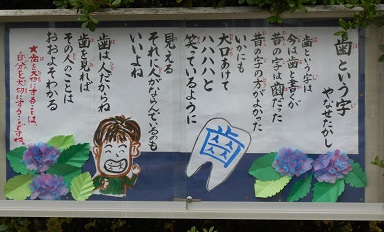 歯という字
やなせたかし
歯という字は
今は歯と書くが
昔の字は齒だった
昔の字の方がよかった
いかにも
大口あけて
ハハハハと
笑っているように
見える
それに人がならんでいるのも
いいよね
歯は人だからね
歯を見れば
その人のことは
おおよそわかる
★歯を大切にすることは、
自分を大切にすることですね。
齒